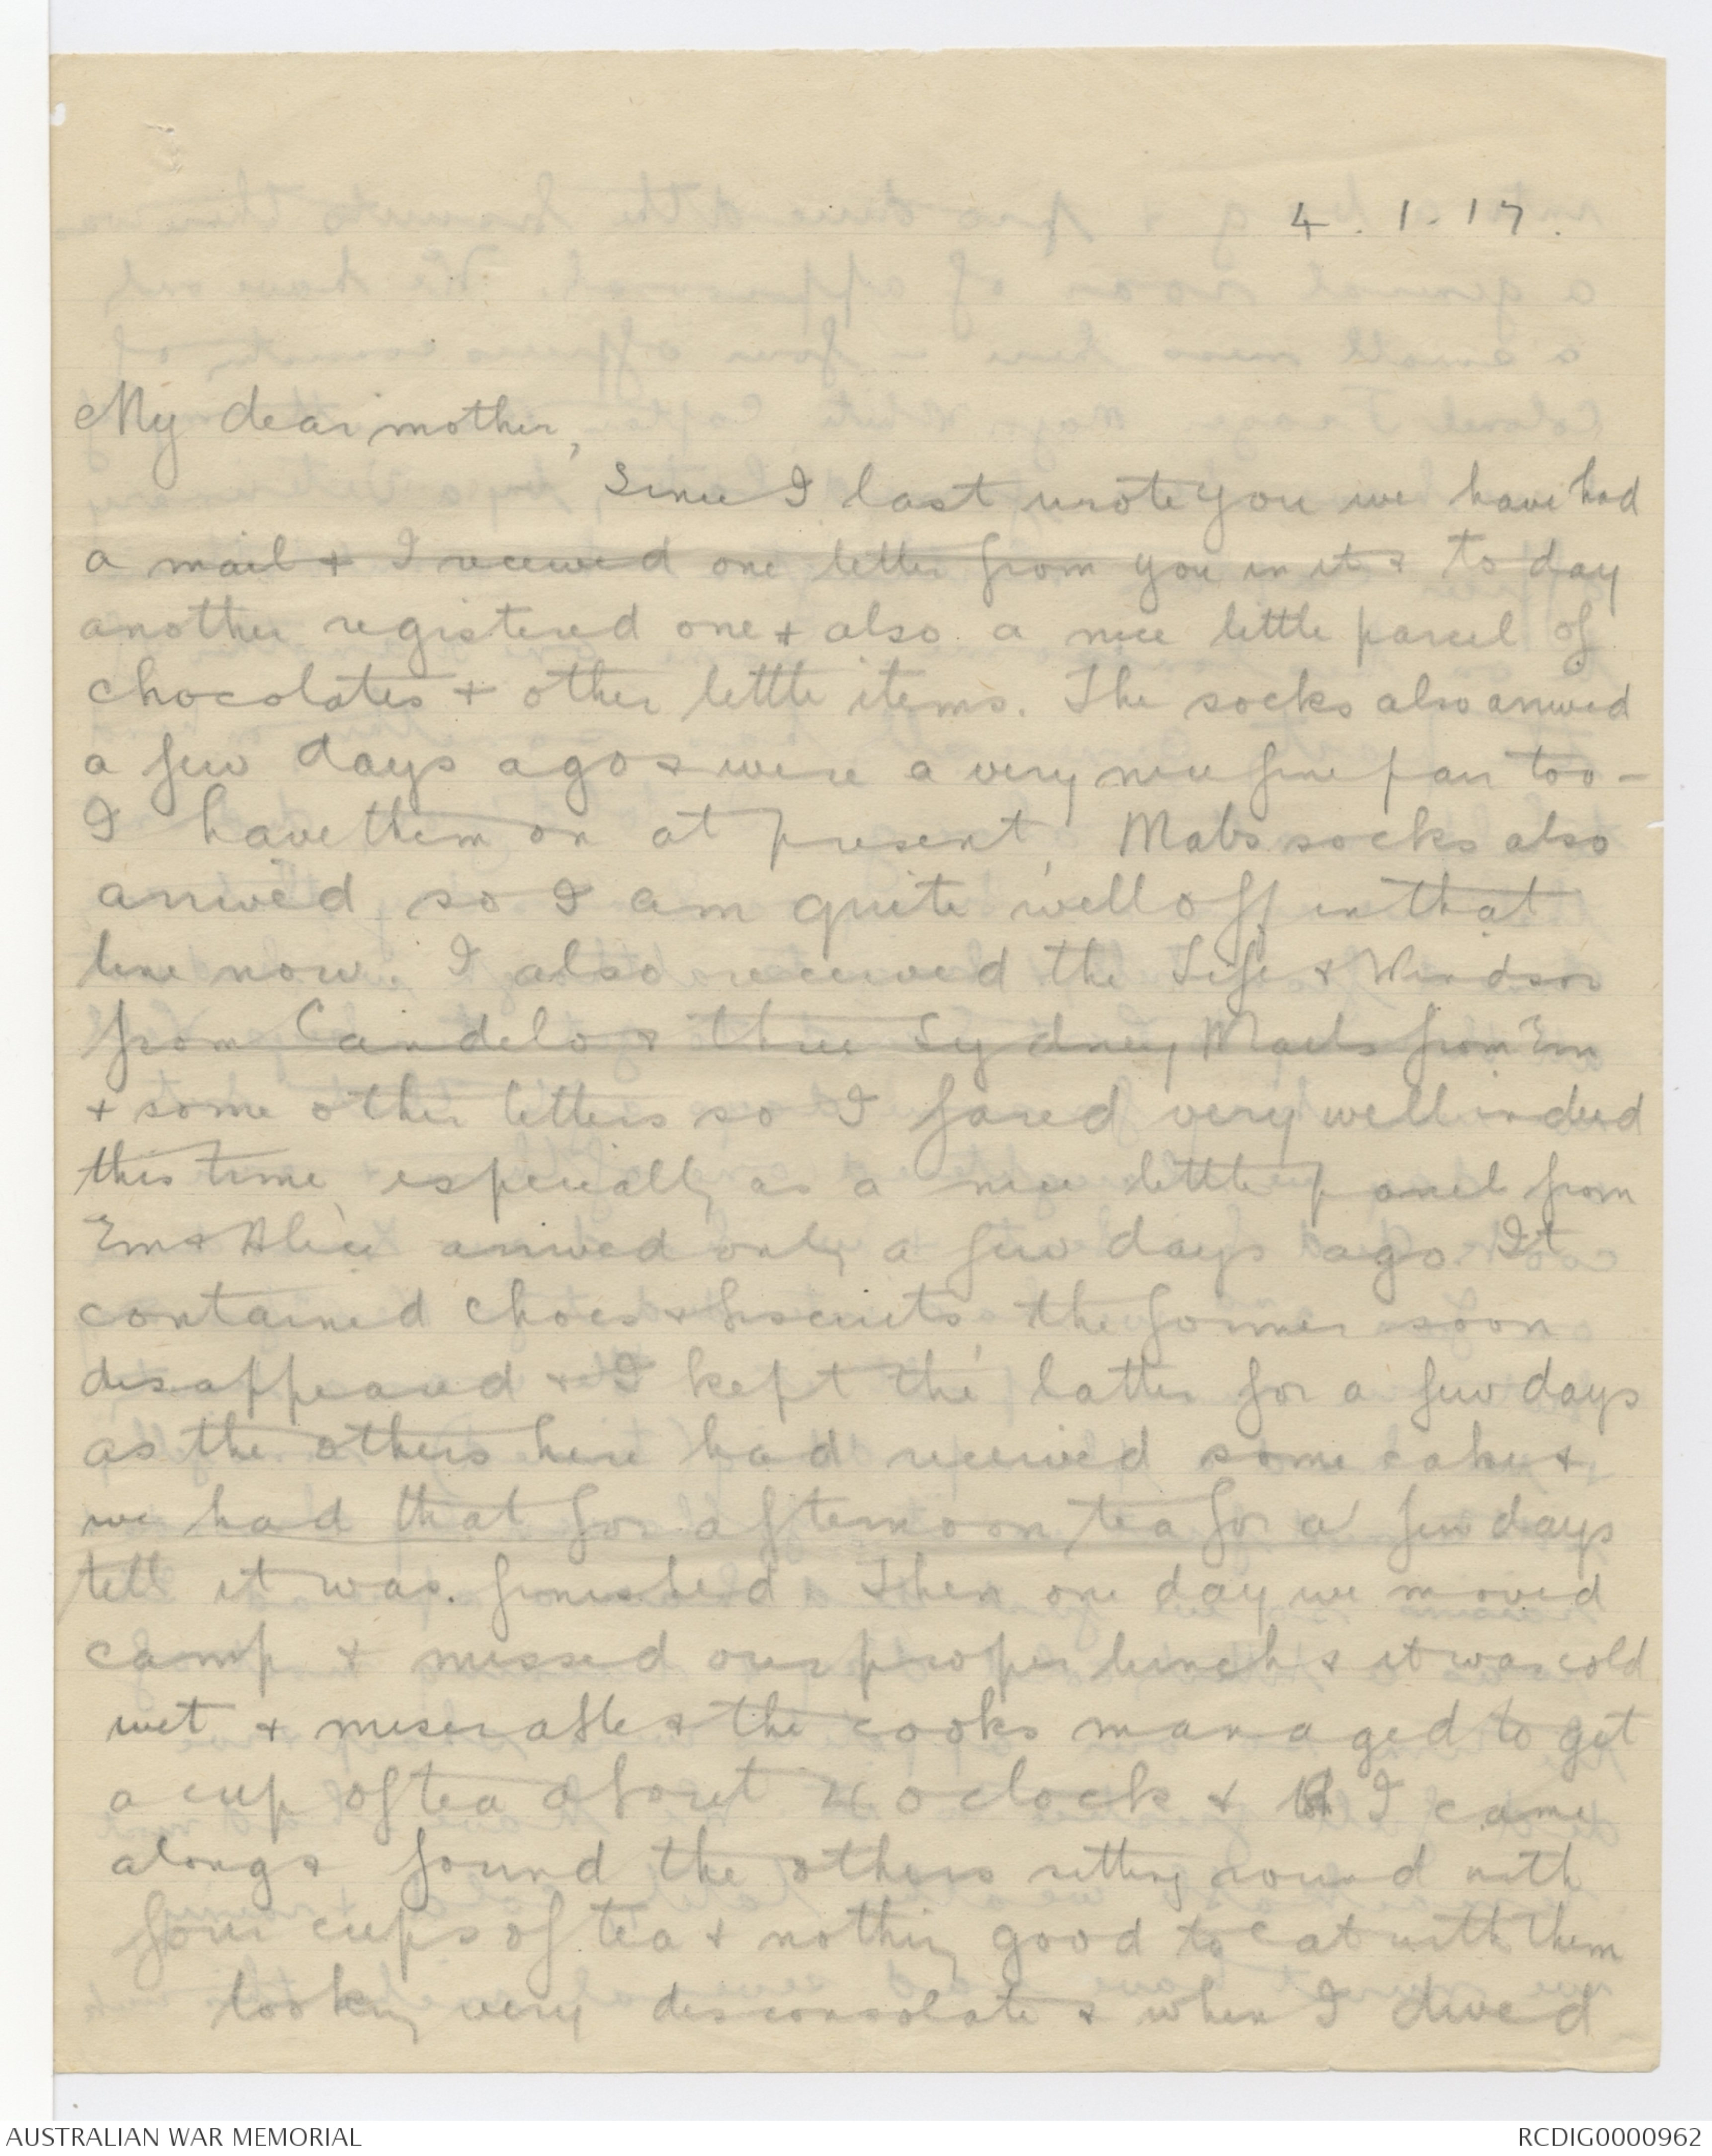 4.1.17.
My dear mother,
Since I last wrote you we have had
a mail & I received one letter from you in it & to day
another registered one & also a nice little parcel of
chocolates & other little items. The socks also arrived
a few days ago & were a very nice fine pair too -
I have them on at present, Mabs socks also
arrived so I am quite well off in that
line now. I also received the Life & Windsor
from Candelo & three Sydney Mails from Em
& some other letters so I fared very well indeed
this time, especially as a nice little parcel from
Em & Alice arrived only a few days ago. It
contained chocs & biscuits, the former soon
disappeared & I kept the latter for a few days
as the others here had received some cakes &
we had that for afternoon tea for a few days
till it was finished. Then one day we moved
camp & missed our proper lunch & it was cold
wet & miserable & the cooks managed to get
a cup of tea about 4 o clock & I came
along & found the others sitting round with
four cups of tea & nothing good to eat with them
looking very disconsolate & when I dived
AUSTRALIAN WAR MEMORIAL
RCDIG0000962